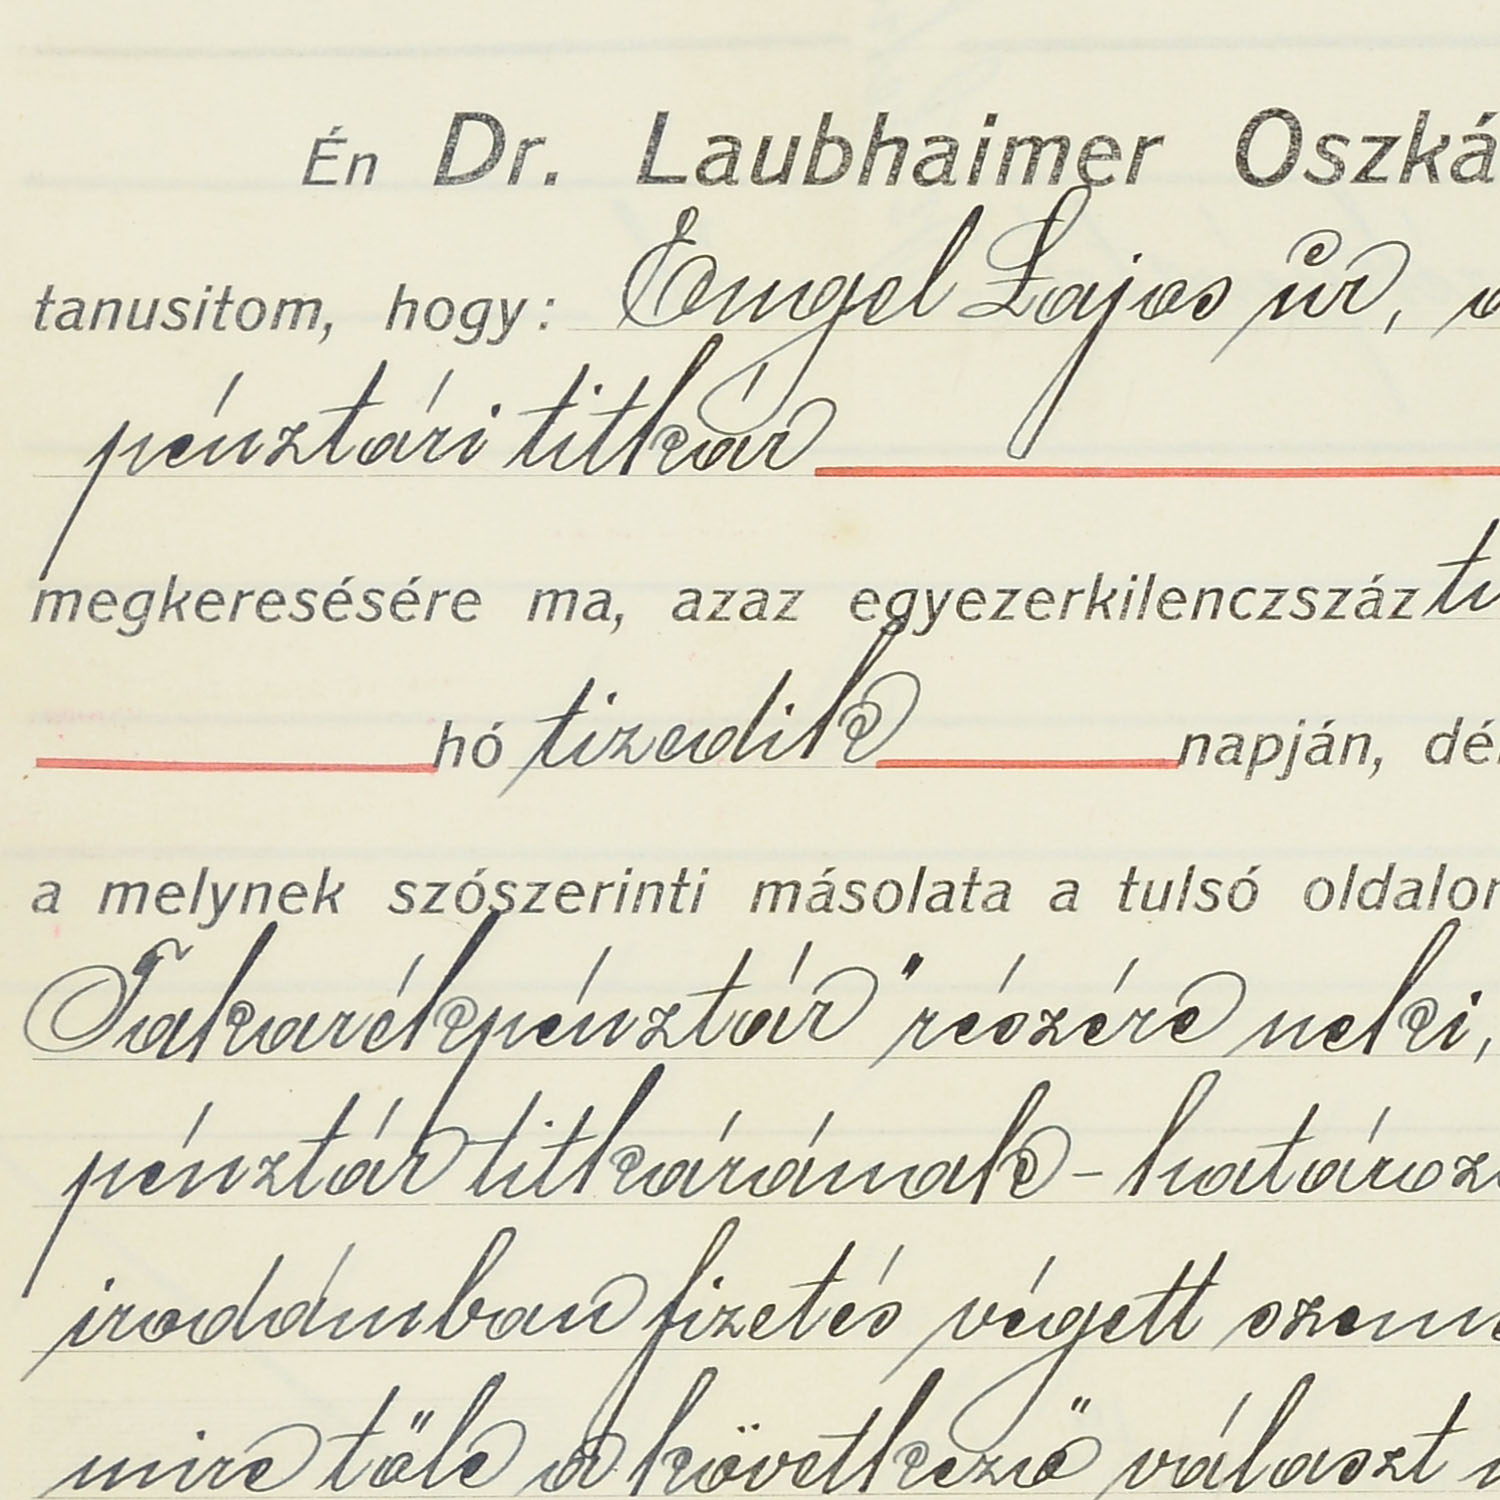 Én Dr. Laubhaimer Oszká
tanusitom, hogy: Engel Lajos úr, a
pénztári titkár
megkeresésére ma, azaz egyezerkilenczszáz ti
hó tizedik napján, dé
a melynek szószerinti másolata a tulsó oldalon
Takarékpénztár" részére neki,
pénztár titkárának - határoz
irodámban fizetés végett szem
mire tőle a következő választ